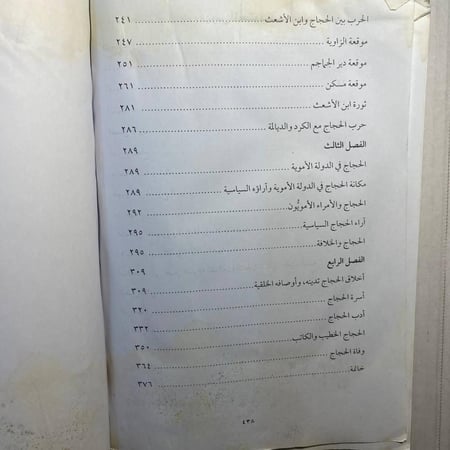 الحرب بين الحجاج وابن الأشعث ........ ٢٤١
موقعة الزاوية ........ ٢٤٧
موقعة دير الجماجم ........ ٢٥١
موقعة مسكن ........ ٢٦١
ثورة ابن الأشعث ........ ٢٨١
حرب الحجاج مع الكرد والديالمة ........ ٢٨٦
الفصل الثالث ........ ٢٨٩
الحجاج في الدولة الأموية ........ ٢٨٩
مكانة الحجاج في الدولة الأموية وأراؤه السياسية ........ ٢٨٩
الحجاج والأمراء الأمويُّون ........ ٢٩٢
أراء الحجاج السياسية ........ ٢٩٥
الحجاج والخلافة ........ ٢٩٥
الفصل الرابع ........ ٣٠٩
أخلاق الحجاج تدينه، وأوصافه الخلقية ........ ٣٠٩
أسرة الحجاج ........ ٣٢٠
أدب الحجاج ........ ٣٣٢
الحجاج الخطيب والكاتب ........ ٣٥٠
وفاة الحجاج ........ ٣٦٤
خاتمة ........ ٣٧٦
٤٣٨